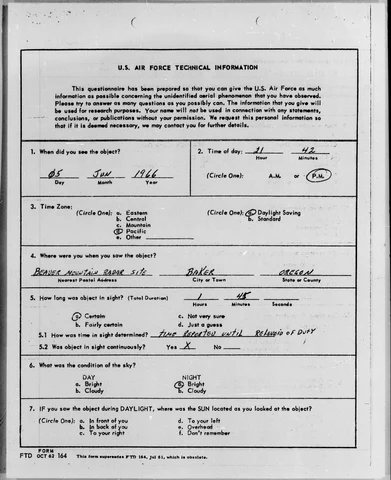 U.S. AIR FORCE TECHNICAL INFORMATION
This questionnaire has been prepared so that you can give the U.S. Air Force as much
information as possible concerning the unidentified aerial phenomenon that you have observed.
Please try to answer as many questions as you possibly can. The information that you give will
be used for research purposes. Your name will not be used in connection with any statements,
conclusions, or publications without your permission. We request this personal information so
that if it is deemed necessary, we may contact you for further details.
1. When did you see the object?
05 JUN 1966
Day Month Year
2. Time of day: 21 42
Hour Minutes
(Circle One): A.M. or P.M.
3. Time Zone:
(Circle One): a. Eastern
b. Central
c. Mountain
d. Pacific
e. Other
(Circle One): a. Daylight Saving
b. Standard
4. Where were you when you saw the object?
BEAVER MOUNTAIN RADAR SITE BAKER OREGON
Nearest Postal Address City or Town State or County
5. How long was object in sight? (Total Duration) 1 45
Hours Minutes Seconds
a. Certain c. Not very sure
b. Fairly certain d. Just a guess
5.1 How was time in sight determined? TIME REPORTED UNTIL RELIEVED OF DUTY
5.2 Was object in sight continuously? Yes X No
6. What was the condition of the sky?
DAY NIGHT
a. Bright a. Bright
b. Cloudy b. Cloudy
7. IF you saw the object during DAYLIGHT, where was the SUN located as you looked at the object?
(Circle One): a. In front of you d. To your left
b. In back of you e. Overhead
c. To your right f. Don't remember
FORM
FTD OCT 62 164 This form supersedes FTD 164, Jul 61, which is obsolete.